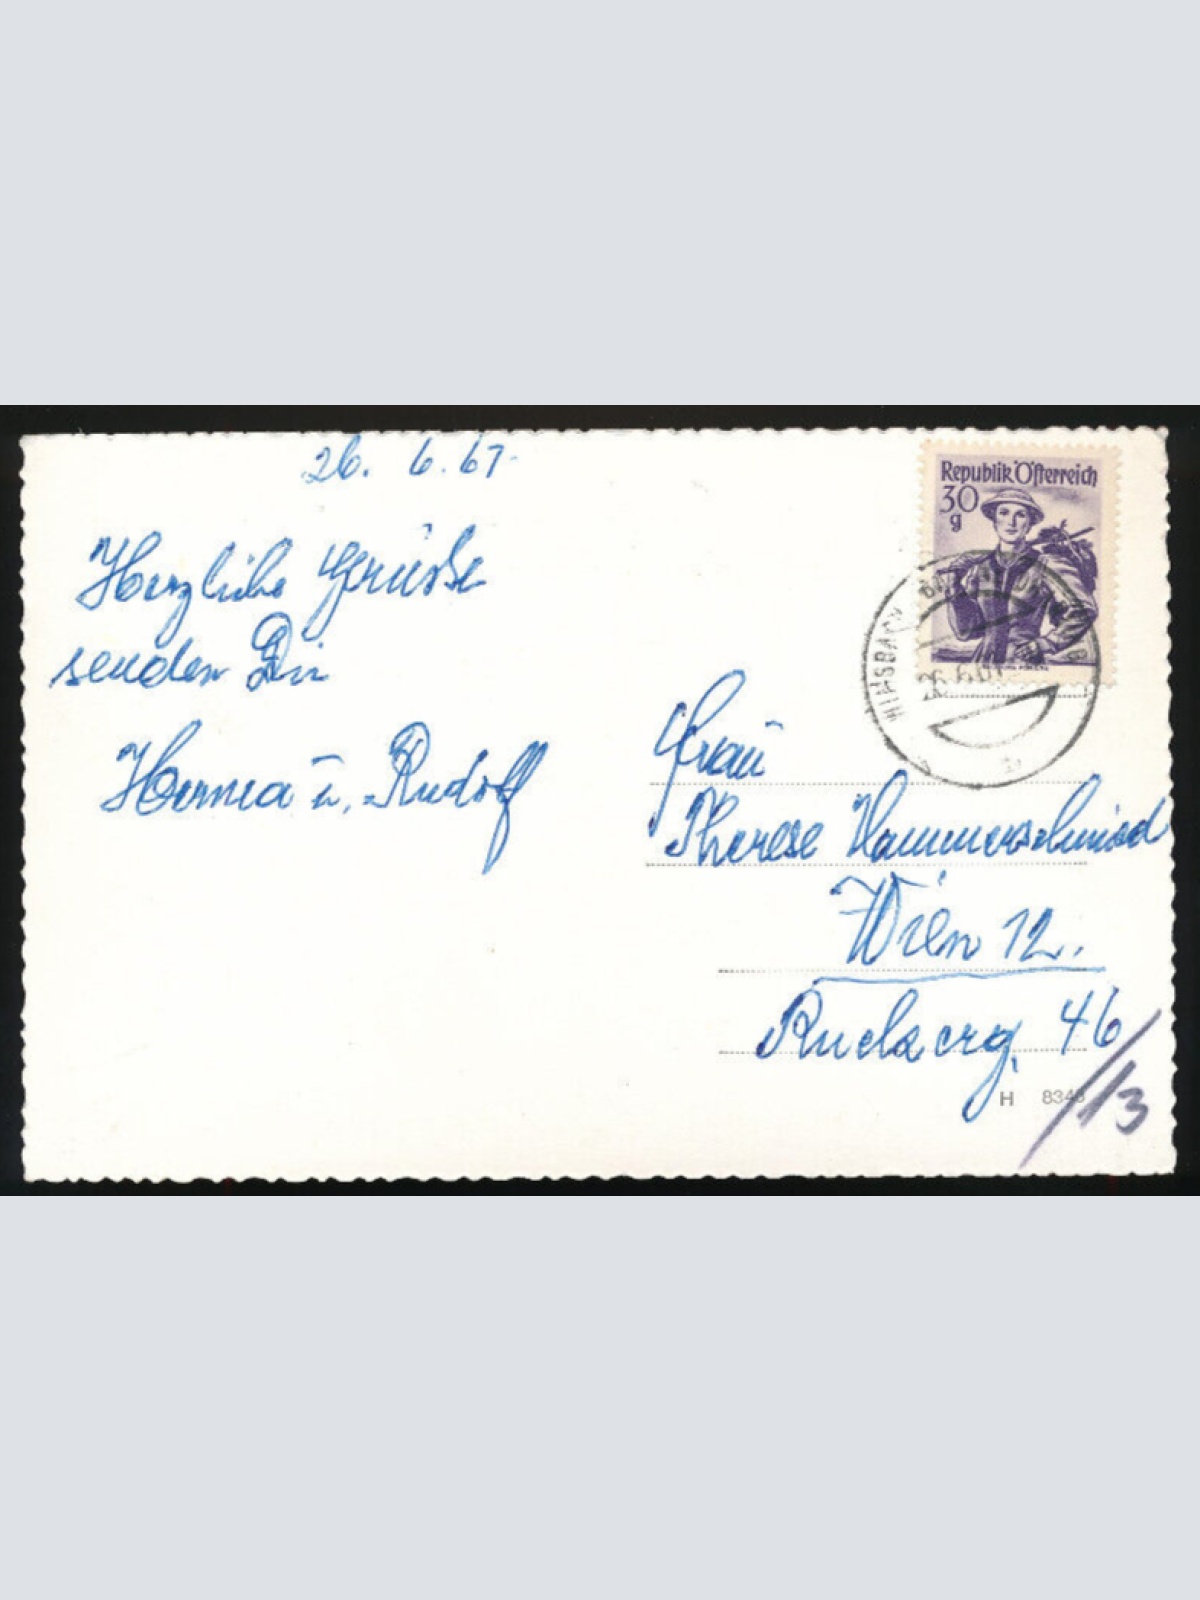 26. 6. 61.
Republik Österreich
30
g
Herzliche Grüße
senden Dir
Herma u. Rudolf
26.6.61
Frau
Therese Hammerschmied
Wien 12.
46
/13
H 8348